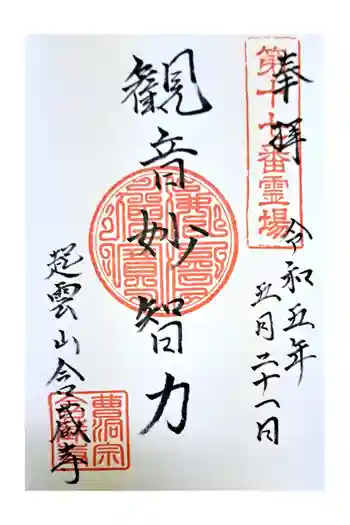 奉拝
第十七番霊場
令和五年
五月二十一日
観音妙智力
起雲山
曹洞宗